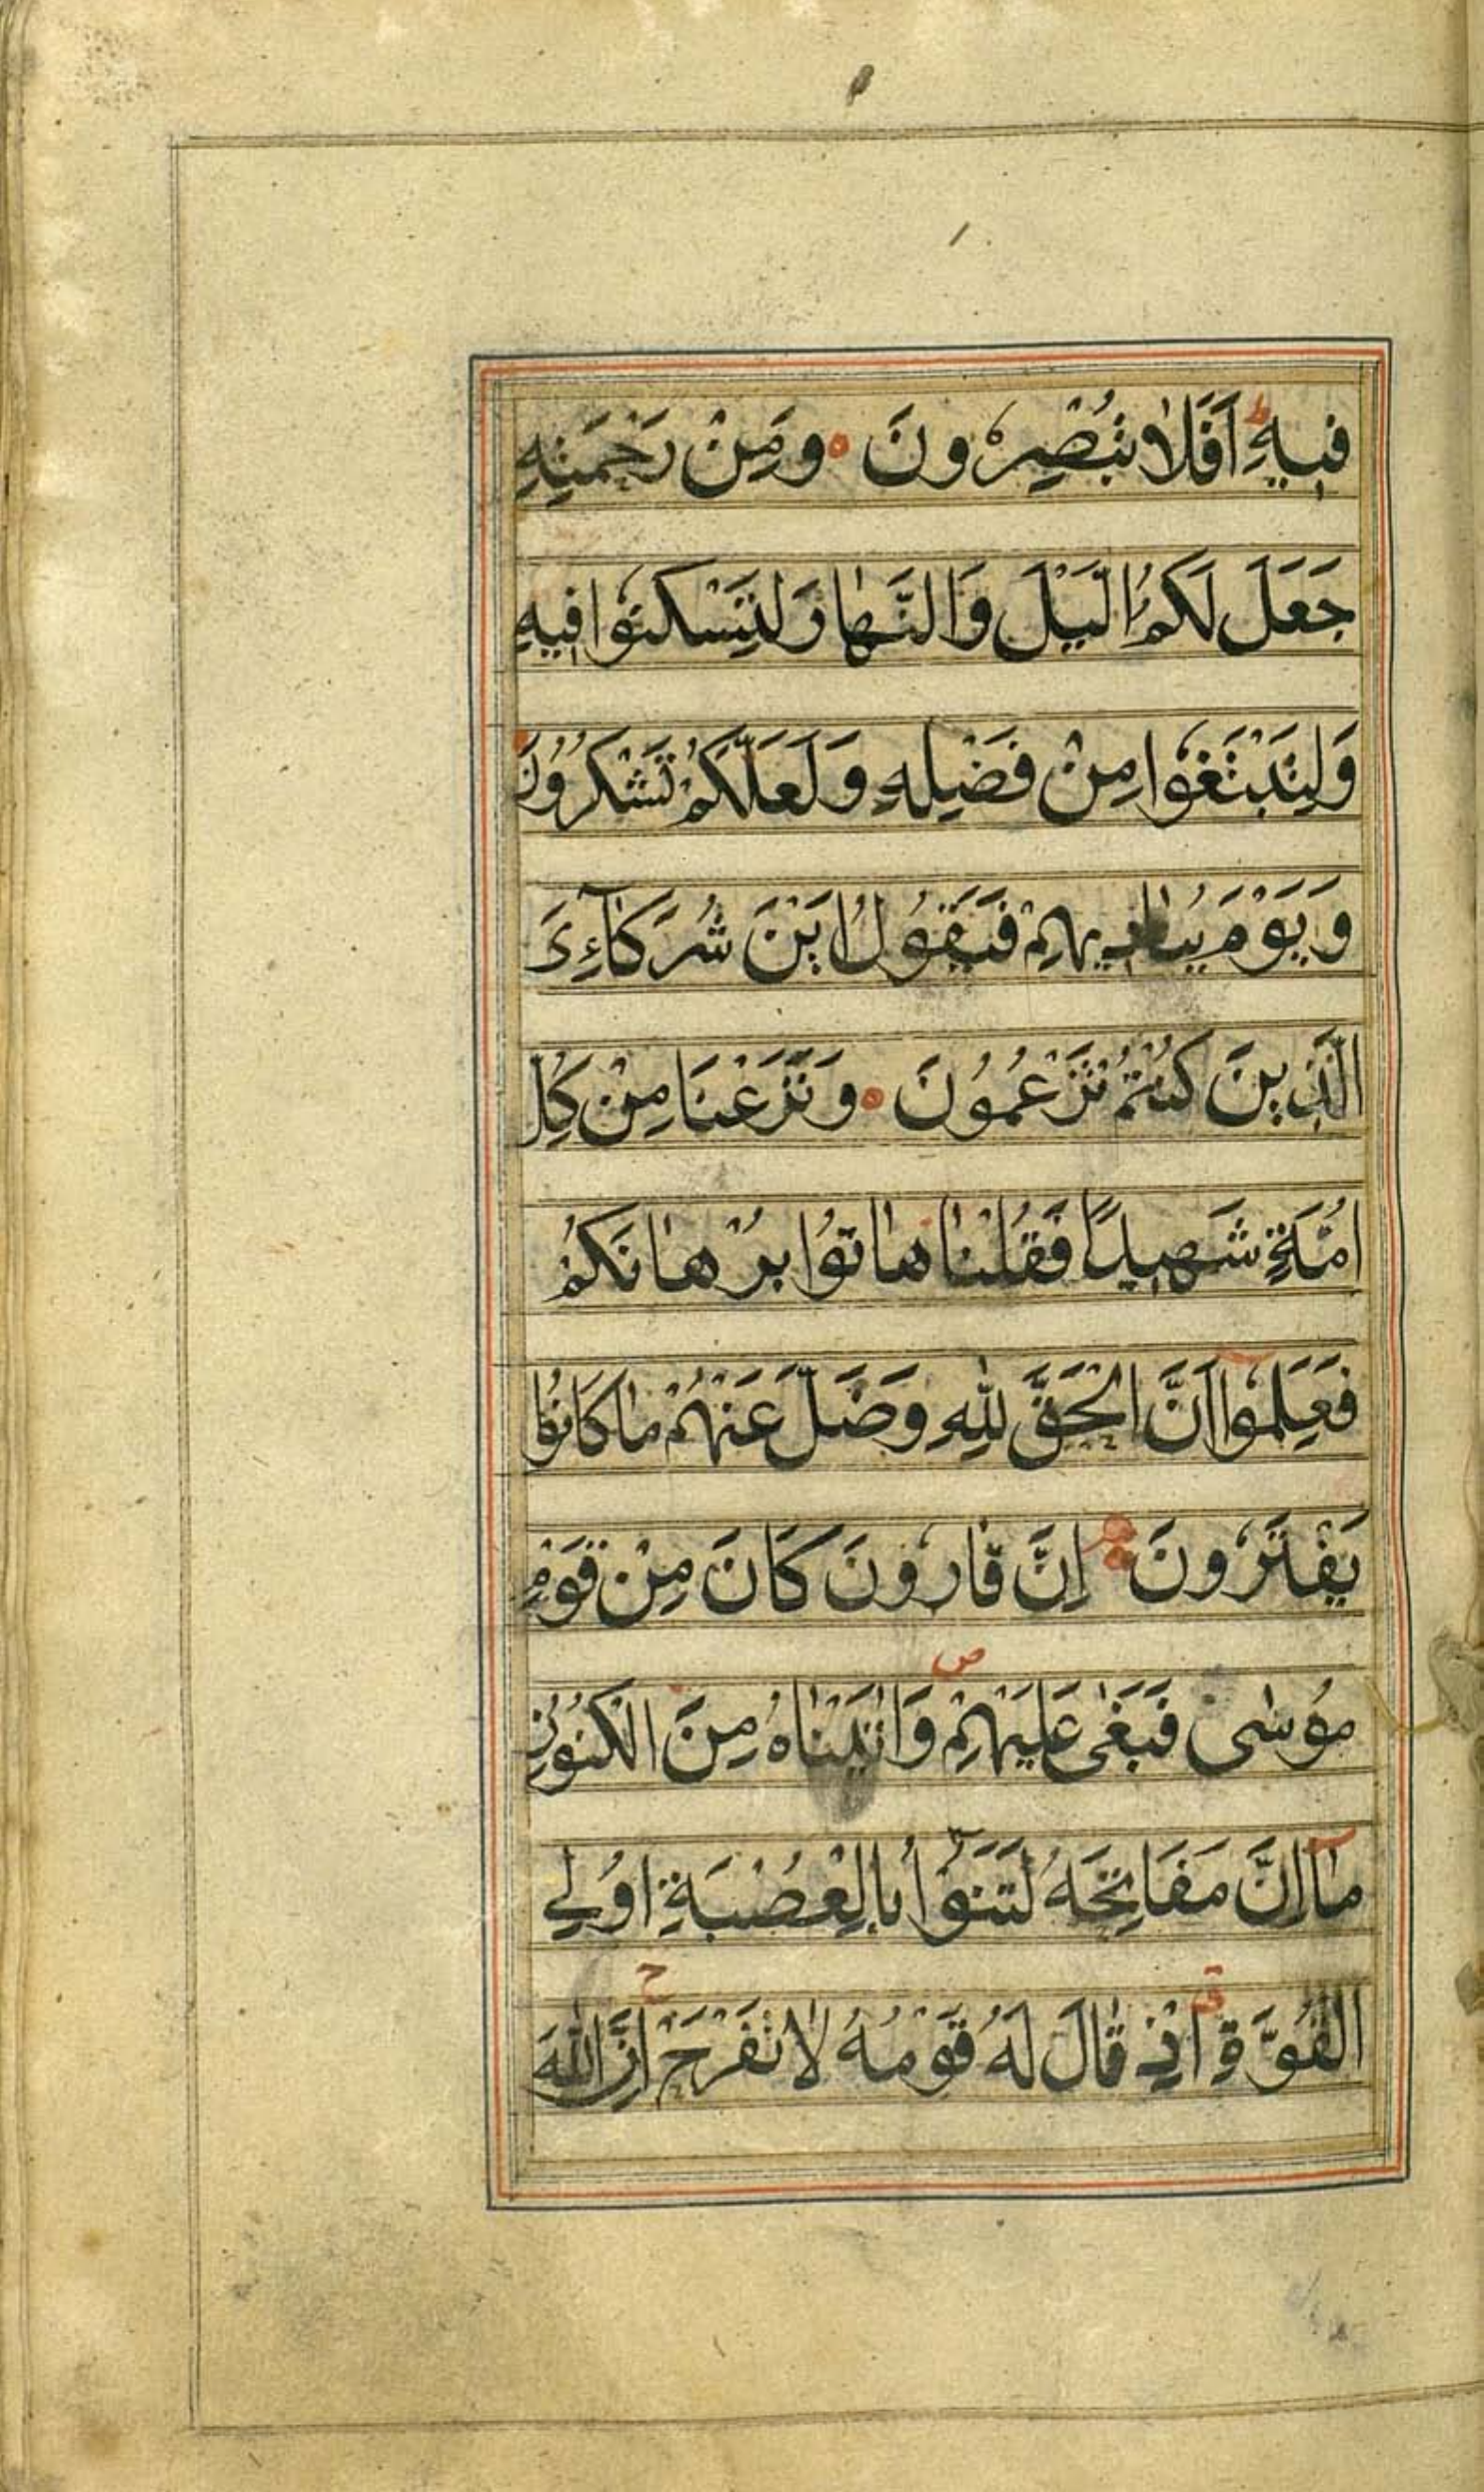 فِيهِ ط اَفَلَا تُبْصِرُونَ ه وَمِنْ رَحْمَتِهِ
جَعَلَ لَكُمُ الَّيْلَ وَالنَّهَارَ لِتَسْكُنُوا فِيهِ
وَلِتَبْتَغُوا مِنْ فَضْلِهِ وَلَعَلَّكُمْ تَشْكُرُونَ
وَيَوْمَ يُنَادِيهِمْ فَيَقُولُ اَيْنَ شُرَكَآءِىَ
الَّذِينَ كُنْتُمْ تَزْعُمُونَ ه وَنَزَعْنَا مِنْ كُلِّ
اُمَّةٍ شَهِيدًا فَقُلْنَا هَاتُوا بُرْهَانَكُمْ
فَعَلِمُوآ اَنَّ الْحَقَّ لِلّٰهِ وَضَلَّ عَنْهُمْ مَا كَانُوا
يَفْتَرُونَ اِنَّ قَارُونَ كَانَ مِنْ قَوْمِ
مُوسٰى فَبَغٰى عَلَيْهِمْ ص وَاٰتَيْنَاهُ مِنَ الْكُنُوزِ
مَآ اِنَّ مَفَاتِحَهُ لَتَنُوٓأُ بِالْعُصْبَةِ اُولِي
الْقُوَّةِ ق اِذْ قَالَ لَهُ قَوْمُهُ لَا تَفْرَحْ ح اِنَّ اللّٰهَ